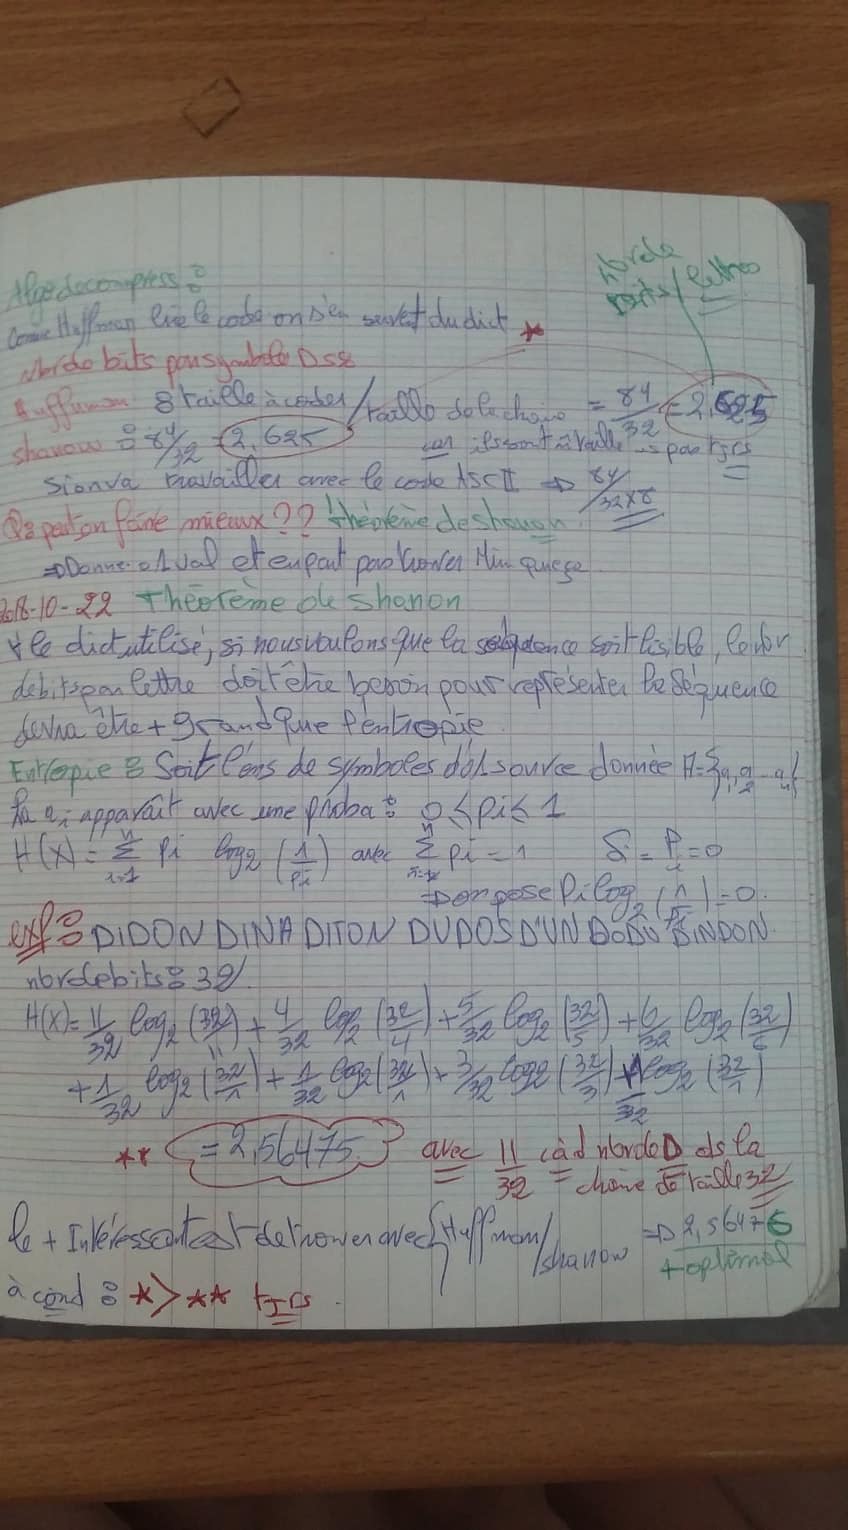 Nbr de
bits/lettres
Algo decompress :
Comme Huffman lire le code on s'en servant du dict *
Nbr de bits par symbole
Huffman : taille à coder / taille de la chaine = 84/32 = 2,625
shanow : 84/32 = 2,625 car ils sont à taille pas tjrs
Si on va travailler avec le code ASCII => 84/32x8
Q: peut on faire mieux ?? théorème de shanon
=> Donne 1 val et en peut pas trouver Min que ça
2018-10-22 Théorème de shanon
∀ le dict utilisé, si nous voulons que la séquence soit lisible, le nbr
de bits par lettre doit être besoin pour représenter la séquence
devra être + grand que l'entropie
Entropie : Soit l'ens de symboles d'1 source donnée A={a1,a2 - an}
ai apparait avec une proba : 0 ≤ pi ≤ 1
H(X) = Σ pi log2 (1/pi) avec Σ pi = 1 Si Pi = 0
=> on pose Pi log2 (1/Pi) = 0.
exp : DIDON DINA DITON DUDOS D'UN DODU DINDON
nbr de bits : 32.
H(X) = 11/32 log2 (32/11) + 4/32 log2 (32/4) + 5/32 log2 (32/5) + 6/32 log2 (32/6)
+ 1/32 log2 (32/1) + 1/32 log2 (32/1) + 3/32 log2 (32/3) + 1/32 log2 (32/1)
** = 2,56475 avec 11/32 càd nbr de D ds la
chaine de taille 32
le + Intéressant est de trouver avec Huffman/shanow => 2,56476
+ optimal
à cond : * > ** tjrs.